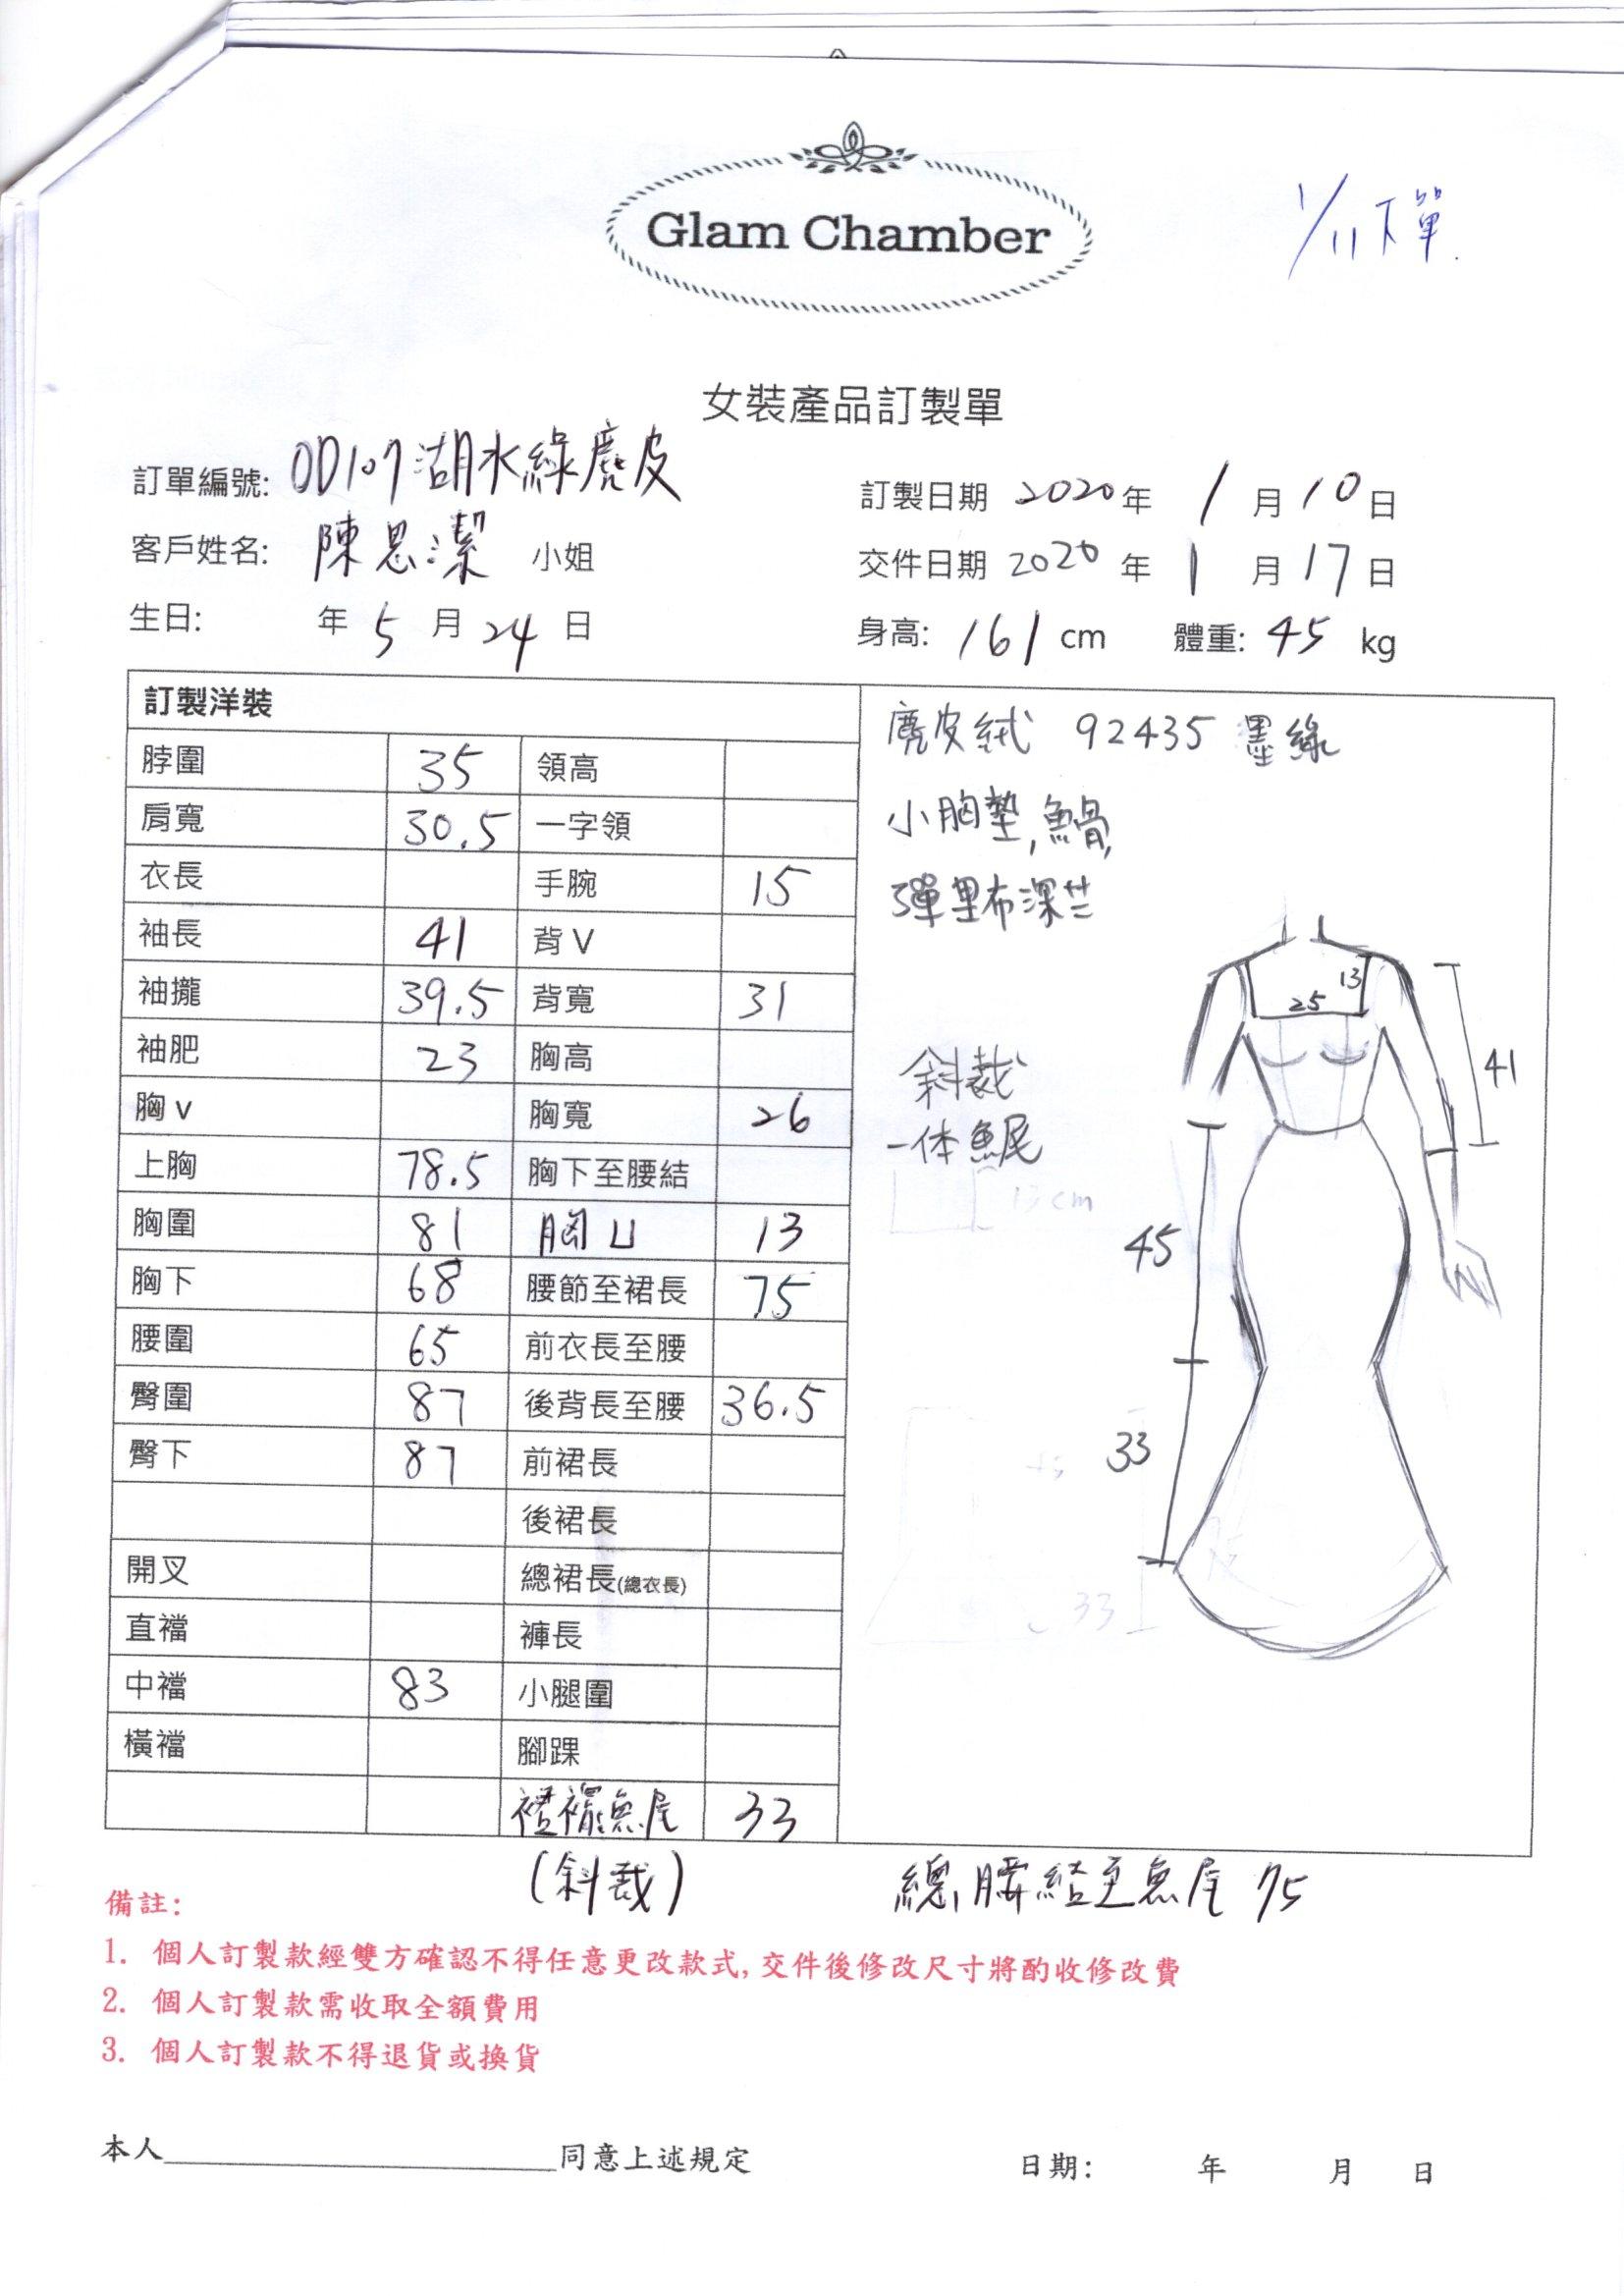 Glam Chamber
1/11下單.
女裝產品訂製單
訂單編號: OD107湖水綠麂皮
訂製日期 2020年 1月10日
客戶姓名: 陳思潔 小姐
交件日期 2020年 1月17日
生日: 年5月24日
身高: 161cm 體重: 45 kg
訂製洋裝
脖圍 35 領高
肩寬 30.5 一字領
衣長 手腕 15
袖長 41 背V
袖攏 39.5 背寬 31
袖肥 23 胸高
胸v 胸寬 26
上胸 78.5 胸下至腰結
胸圍 81 胸凵 13
胸下 68 腰節至裙長 75
腰圍 65 前衣長至腰
臀圍 87 後背長至腰 36.5
臀下 87 前裙長
後裙長
開叉 總裙長(總衣長)
直襠 褲長
中襠 83 小腿圍
橫襠 腳踝
裙襬魚尾 33
(斜裁)
麂皮絨 92435 墨綠
小胸墊,魚骨,
彈里布深芷
13
25
41
斜裁
一体魚尾
13cm
45
33
33
總腰結至魚尾 75
備註:
1. 個人訂製款經雙方確認不得任意更改款式,交件後修改尺寸將酌收修改費
2. 個人訂製款需收取全額費用
3. 個人訂製款不得退貨或換貨
本人 同意上述規定
日期: 年 月 日